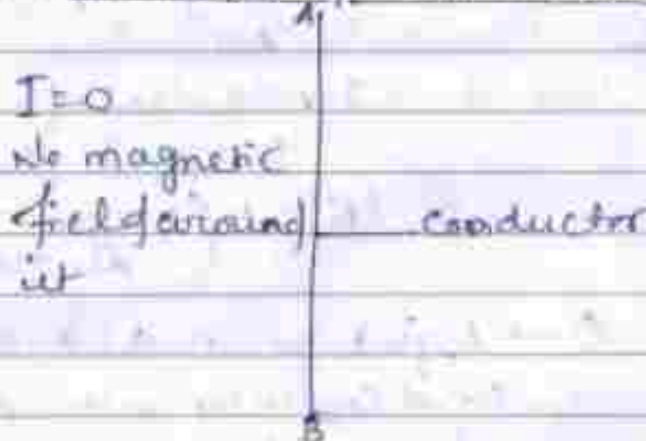 A
I = 0
No magnetic
field around conductor
it
B